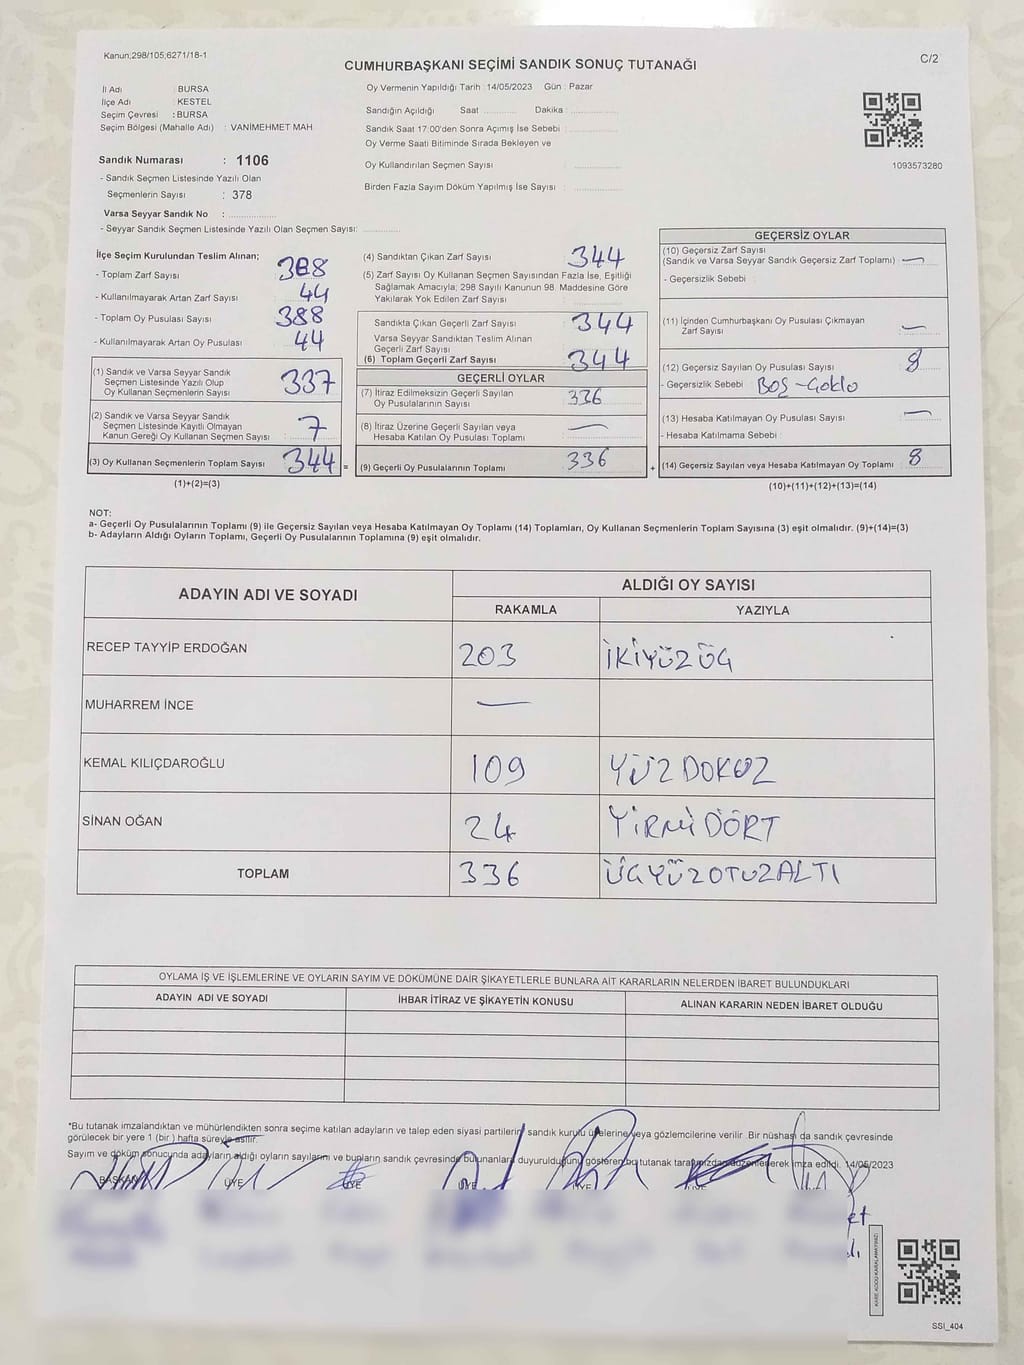 Kanun;298/105;6271/18-1
CUMHURBAŞKANI SEÇİMİ SANDIK SONUÇ TUTANAĞI
C/2
İl Adı : BURSA
İlçe Adı : KESTEL
Seçim Çevresi : BURSA
Seçim Bölgesi (Mahalle Adı) : VANİMEHMET MAH
Oy Vermenin Yapıldığı Tarih : 14/05/2023 Gün : Pazar
Sandığın Açıldığı Saat Dakika :
Sandık Saat 17:00'den Sonra Açımış İse Sebebi :
Oy Verme Saati Bitiminde Sırada Bekleyen ve
Oy Kullandırılan Seçmen Sayısı :
Birden Fazla Sayım Döküm Yapılmış İse Sayısı :
1093573280
Sandık Numarası : 1106
- Sandık Seçmen Listesinde Yazılı Olan
Seçmenlerin Sayısı : 378
Varsa Seyyar Sandık No :
- Seyyar Sandık Seçmen Listesinde Yazılı Olan Seçmen Sayısı:
İlçe Seçim Kurulundan Teslim Alınan;
- Toplam Zarf Sayısı 388
- Kullanılmayarak Artan Zarf Sayısı 44
- Toplam Oy Pusulası Sayısı 388
- Kullanılmayarak Artan Oy Pusulası 44
(1) Sandık ve Varsa Seyyar Sandık
Seçmen Listesinde Yazılı Olup
Oy Kullanan Seçmenlerin Sayısı 337
(2) Sandık ve Varsa Seyyar Sandık
Seçmen Listesinde Kayıtlı Olmayan
Kanun Gereği Oy Kullanan Seçmen Sayısı 7
(3) Oy Kullanan Seçmenlerin Toplam Sayısı 344 =
(1)+(2)=(3)
(4) Sandıktan Çıkan Zarf Sayısı 344
(5) Zarf Sayısı Oy Kullanan Seçmen Sayısından Fazla İse, Eşitliği
Sağlamak Amacıyla; 298 Sayılı Kanunun 98. Maddesine Göre
Yakılarak Yok Edilen Zarf Sayısı :
Sandıkta Çıkan Geçerli Zarf Sayısı 344
Varsa Seyyar Sandıktan Teslim Alınan
Geçerli Zarf Sayısı
(6) Toplam Geçerli Zarf Sayısı 344
GEÇERLİ OYLAR
(7) İtiraz Edilmeksizin Geçerli Sayılan
Oy Pusulalarının Sayısı 336
(8) İtiraz Üzerine Geçerli Sayılan veya
Hesaba Katılan Oy Pusulası Toplamı —
(9) Geçerli Oy Pusulalarının Toplamı 336 +
GEÇERSİZ OYLAR
(10) Geçersiz Zarf Sayısı
(Sandık ve Varsa Seyyar Sandık Geçersiz Zarf Toplamı) —
- Geçersizlik Sebebi :
(11) İçinden Cumhurbaşkanı Oy Pusulası Çıkmayan
Zarf Sayısı —
(12) Geçersiz Sayılan Oy Pusulası Sayısı 8
- Geçersizlik Sebebi : Boş-Çoklo
(13) Hesaba Katılmayan Oy Pusulası Sayısı —
- Hesaba Katılmama Sebebi :
(14) Geçersiz Sayılan veya Hesaba Katılmayan Oy Toplamı 8
(10)+(11)+(12)+(13)=(14)
NOT:
a- Geçerli Oy Pusulalarının Toplamı (9) ile Geçersiz Sayılan veya Hesaba Katılmayan Oy Toplamı (14) Toplamları, Oy Kullanan Seçmenlerin Toplam Sayısına (3) eşit olmalıdır. (9)+(14)=(3)
b- Adayların Aldığı Oyların Toplamı, Geçerli Oy Pusulalarının Toplamına (9) eşit olmalıdır.
ADAYIN ADI VE SOYADI ALDIĞI OY SAYISI
RAKAMLA YAZIYLA
RECEP TAYYİP ERDOĞAN 203 İKİYÜZÜÇ
MUHARREM İNCE —
KEMAL KILIÇDAROĞLU 109 YÜZDOKUZ
SİNAN OĞAN 24 YİRMİDÖRT
TOPLAM 336 ÜÇYÜZOTUZALTI
OYLAMA İŞ VE İŞLEMLERİNE VE OYLARIN SAYIM VE DÖKÜMÜNE DAİR ŞİKAYETLERLE BUNLARA AİT KARARLARIN NELERDEN İBARET BULUNDUKLARI
ADAYIN ADI VE SOYADI İHBAR İTİRAZ VE ŞİKAYETİN KONUSU ALINAN KARARIN NEDEN İBARET OLDUĞU
*Bu tutanak imzalandıktan ve mühürlendikten sonra seçime katılan adayların ve talep eden siyasi partilerin sandık kurulu üyelerine veya gözlemcilerine verilir. Bir nüshası da sandık çevresinde
görülecek bir yere 1 (bir ) hafta süreyle asılır.
Sayım ve döküm sonucunda adayların aldığı oyların sayılarını ve bunların sandık çevresinde bulunanlara duyurulduğunu gösteren bu tutanak tarafımızdan düzenlenerek imza edildi. 14/05/2023
BAŞKAN ÜYE ÜYE ÜYE ÜYE ÜYE
KARE KODU KARALAMAYINIZ!
SSI_404